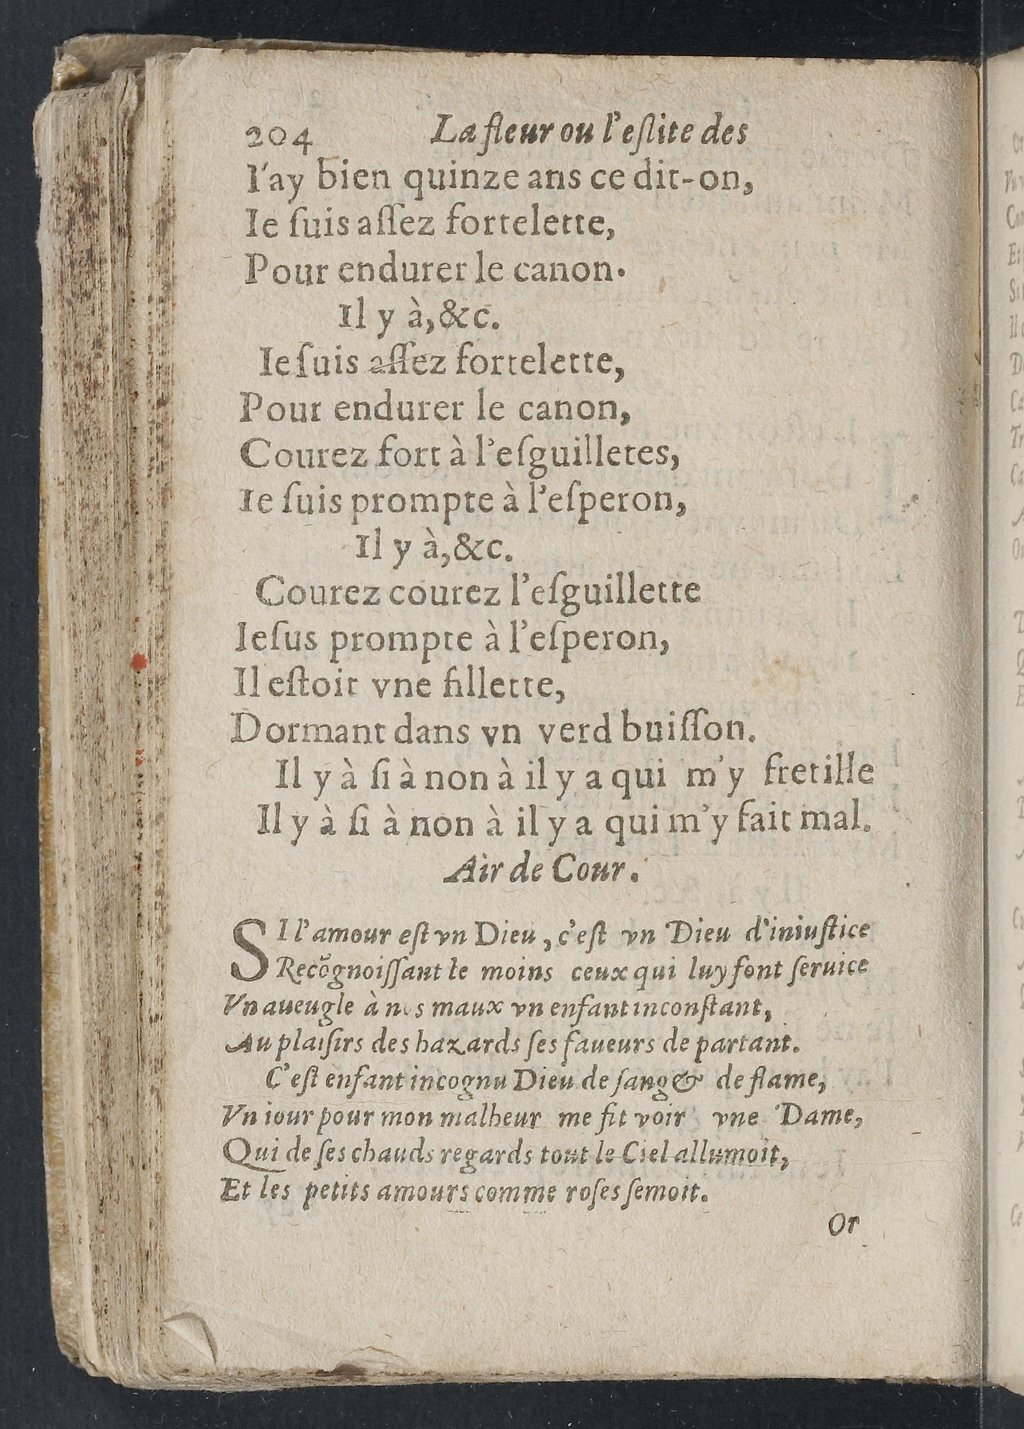 204 La fleur ou l'eſlite des
I'ay bien quinze ans ce dit-on,
Ie ſuis aſſez fortelette,
Pour endurer le canon.
Il y à,&c.
Ie ſuis aſſez fortelette,
Pour endurer le canon,
Courez fort à l'eſguilletes,
Ie ſuis prompte à l'eſperon,
Il y à,&c.
Courez courez l'eſguillette
Ieſus prompte à l'eſperon,
Il eſtoit vne fillette,
Dormant dans vn verd buiſſon.
Il y à ſi à non à il y a qui m'y fretille
Il y à ſi à non à il y a qui m'y fait mal.
Air de Cour.
SI l'amour eſt vn Dieu, c'eſt vn Dieu d'iniuſtice
Recõgnoiſſant le moins ceux qui luy font ſeruice
Vn aueugle à nos maux vn enfant inconſtant,
Au plaiſirs des hazards ſes faueurs de partant.
C'eſt enfant incognu Dieu de ſang & de flame,
Vn iour pour mon malheur me fit voir vne Dame,
Qui de ſes chauds regards tout le Ciel allumoit,
Et les petits amours comme roſes ſemoit.
Or